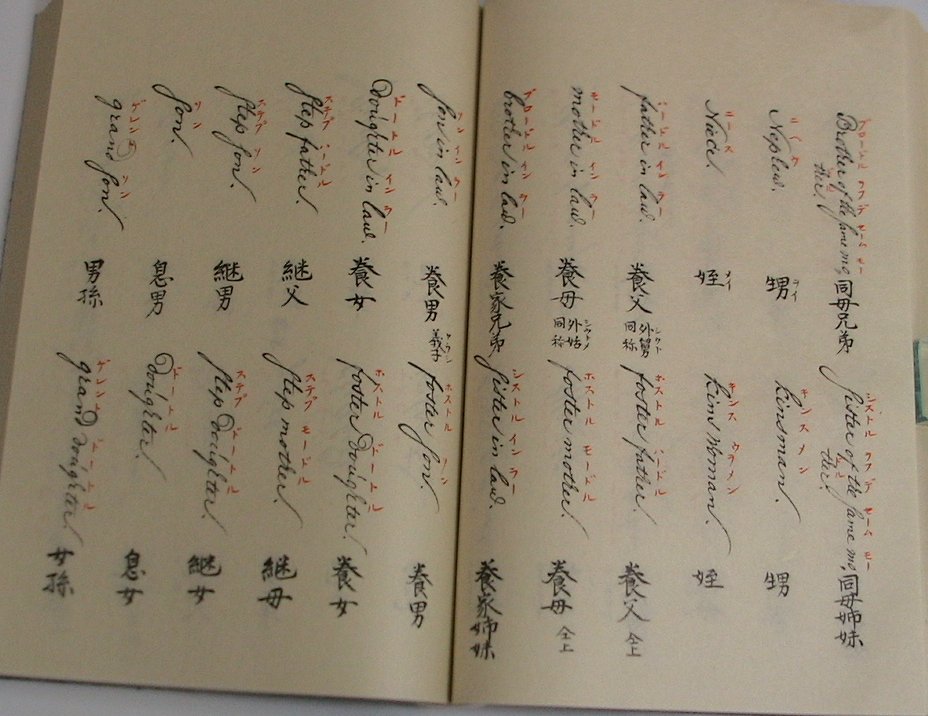 ブローードル ヲフ デ セーム モー ドル
Brother of the same mother. 同母兄弟
シストル ヲフ デ セーム モー ドル
Sister of the same mother. 同母姉妹
Nephew. 甥
キンスメン
Kinsman. 甥
ニース
Niece. 姪
キンス ウヲメン
Kins woman. 姪
father in law. 養父 外舅同称
ホストル
foster father. 養父 仝上
モードル イン ラー
mother in law. 養母 外姑同称
ホストル モードル
foster mother. 養母 仝上
ブロードル イン ラー
brother in law. 養家兄弟
シストル イン ラー
sister in law. 養家姉妹
ソン イン ラー
son in law. 養男 義子
ホストル ソン
foster son. 養男
ドードル イン ラー
Doughter in law. 養女
ホストル ドードル
foster Doughter. 養女
ステップ
step father. 継父
ステップ モードル
step mother. 継母
ステップ ソン
step son. 継男
ステップ ドードル
step Doughter. 継女
ソン
son. 息男
ドードル
Doughter. 息女
ゲレンド ソン
grand son. 男孫
ゲレンド ドードル
grand Doughter. 女孫